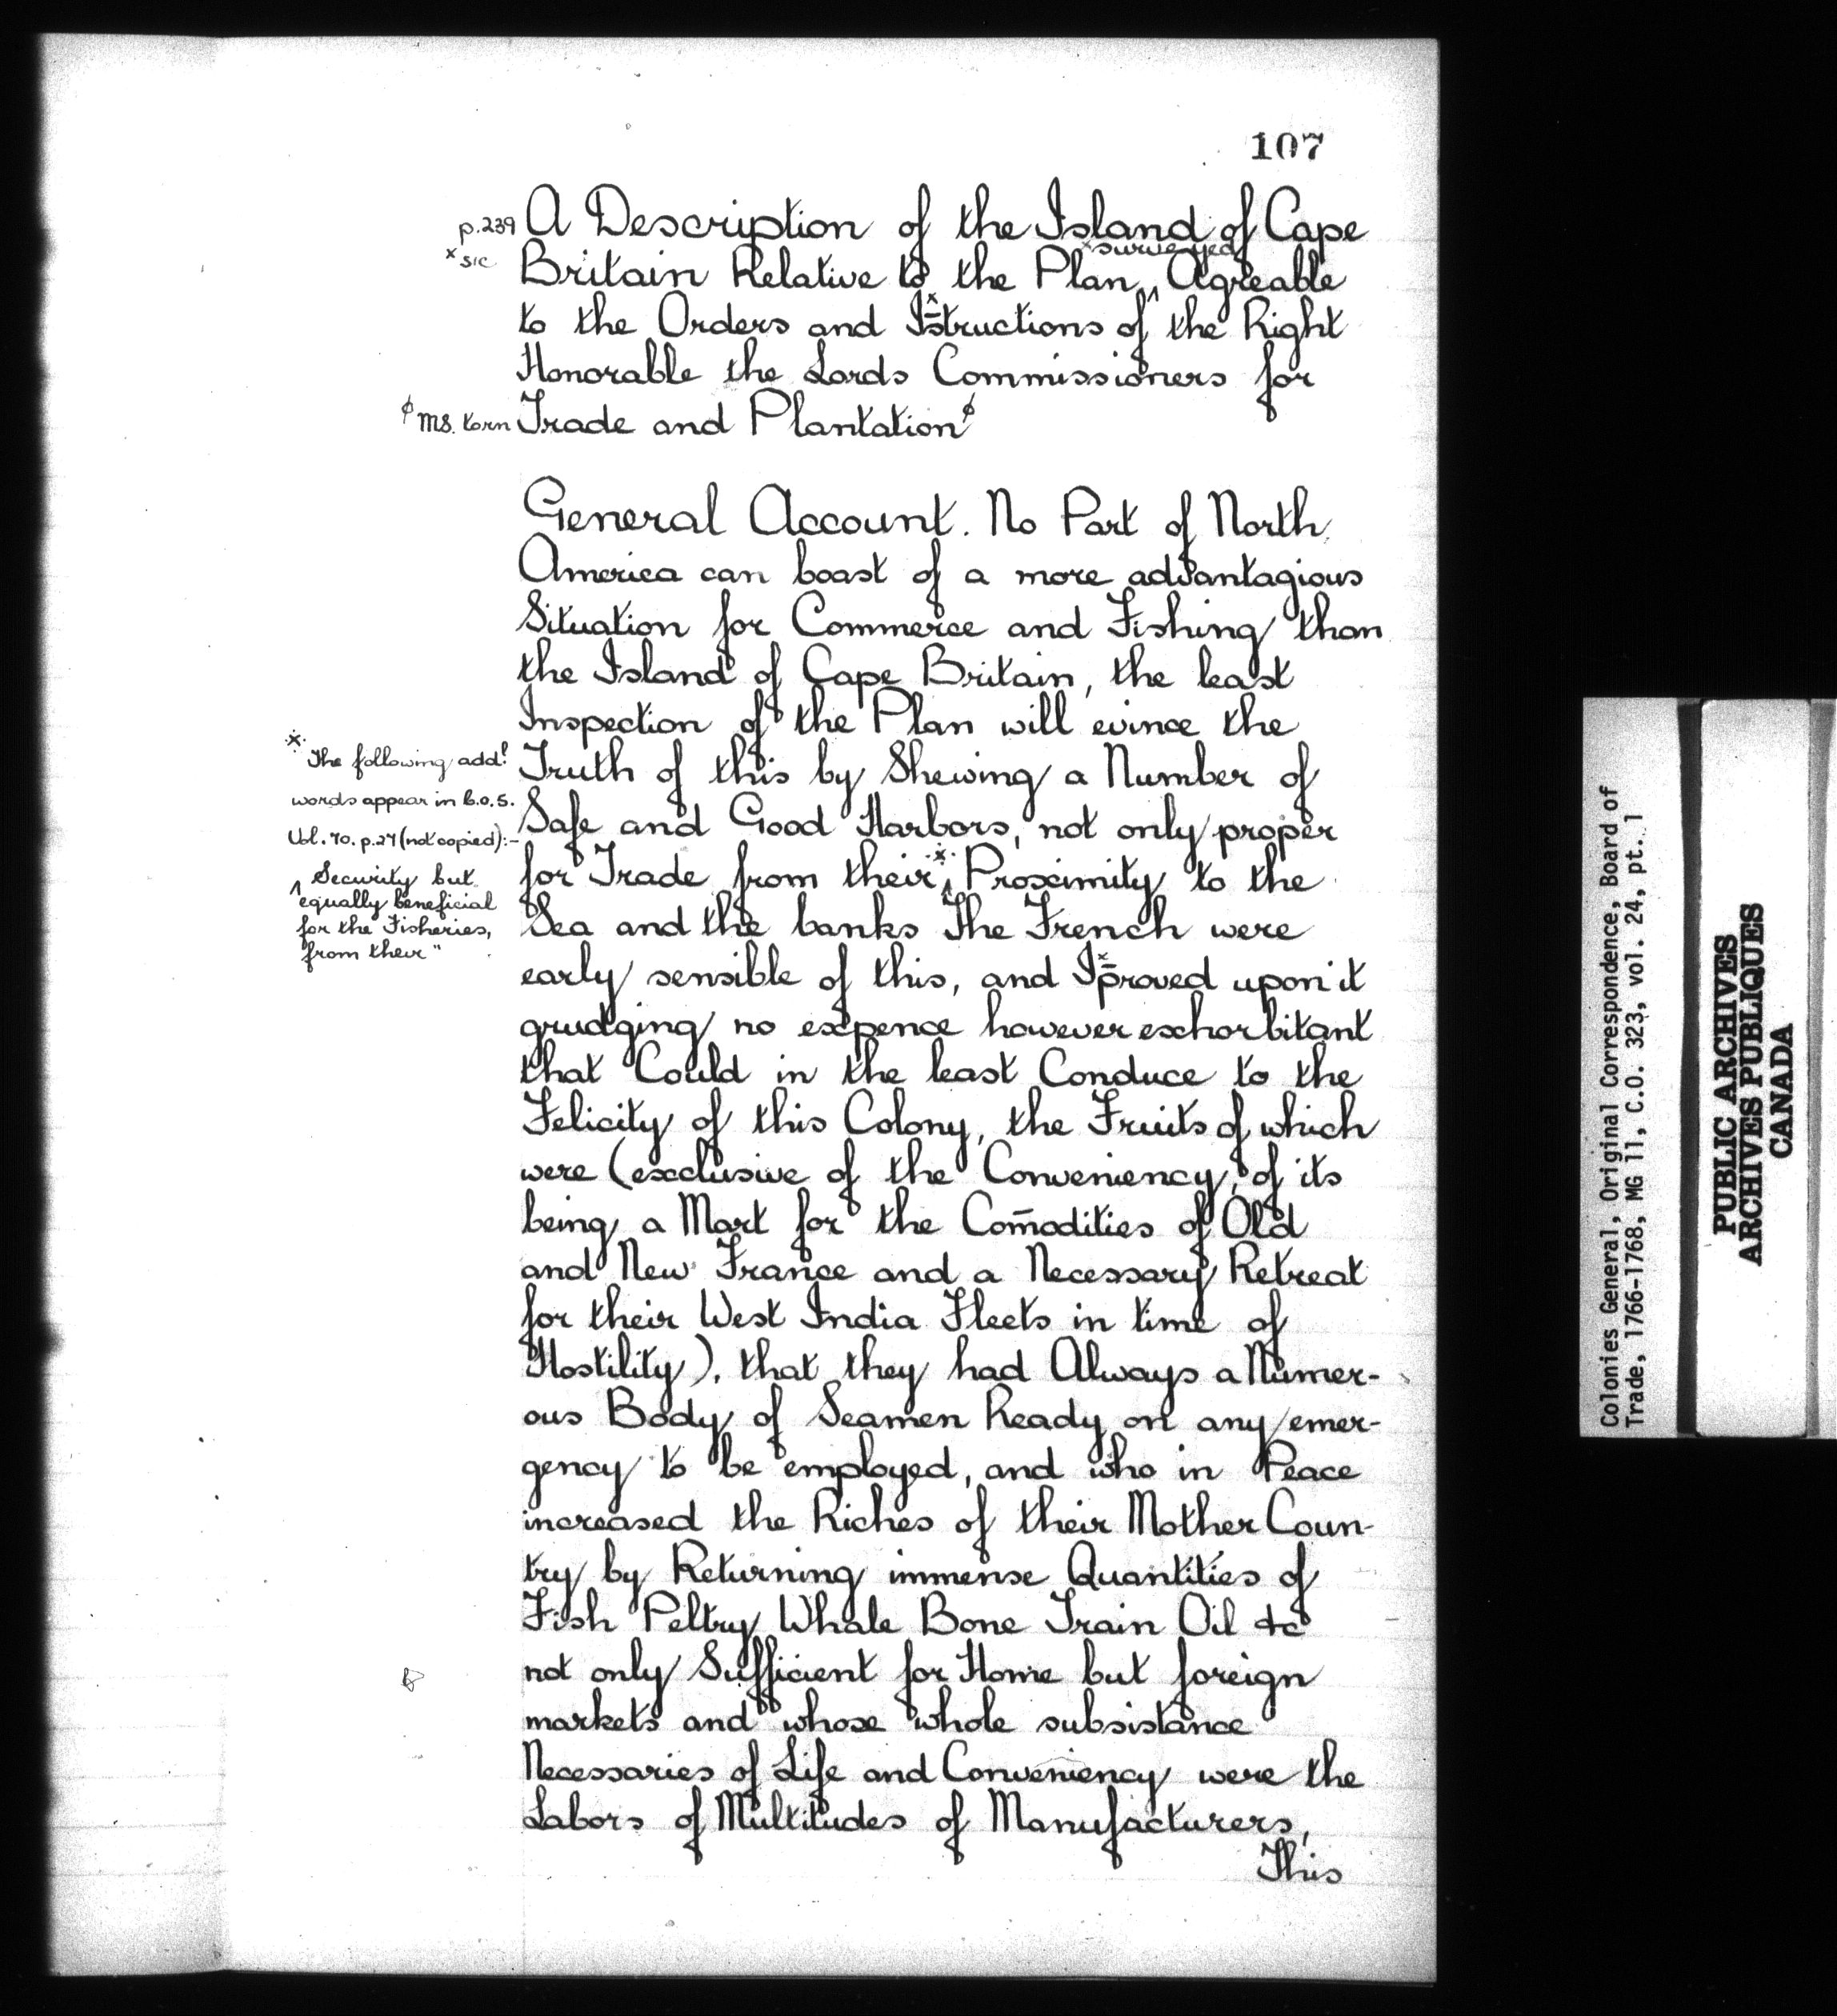 107
p.239 A Description of the Island of Cape
x surveyed
x sic Britain Relative to the Plan ^ Agreable
to the Orders and Ix̄structions of the Right
Honorable the Lords Commissioners for
ϕ MS. torn Trade and Plantation ϕ
General Account. No Part of North
America can boast of a more advantagious
Situation for Commerce and Fishing than
the Island of Cape Britain, the least
Inspection of the Plan will evince the
Truth of this by Shewing a Number of
Safe and Good Harbors, not only proper
for Trade from their ※ ^ Proximity to the
Sea and the banks The French were
early sensible of this, and Ip̄roved upon it
grudging no expence however exhorbitant
that Could in the least Conduce to the
Felicity of this Colony, the Fruits of which
were (exclusive of the Conveniency, of its
being a Mart for the Com̄odities of Old
and New France and a Necessary Retreat
for their West India Fleets in time of
Hostility), that they had Always a Numer-
ous Body of Seamen Ready on any emer-
gency to be employed, and who in Peace
increased the Riches of their Mother Coun-
try by Returning immense Quantities of
Fish Peltry Whale Bone Train Oil &c
not only Sufficient for Home but foreign
markets and whose whole subsistance
Necessaries of Life and Conveniency were the
Labors of Multitudes of Manufacturers,
This
※ The following addl
words appear in C.O.5.
Vol. 70. p.27 (not copied):-
^ Security but
equally beneficial
for the Fisheries,
from their"
Colonies General, Original Correspondence, Board of
Trade, 1766-1768, MG 11, C.O. 323, vol. 24, pt. 1
PUBLIC ARCHIVES
ARCHIVES PUBLIQUES
CANADA